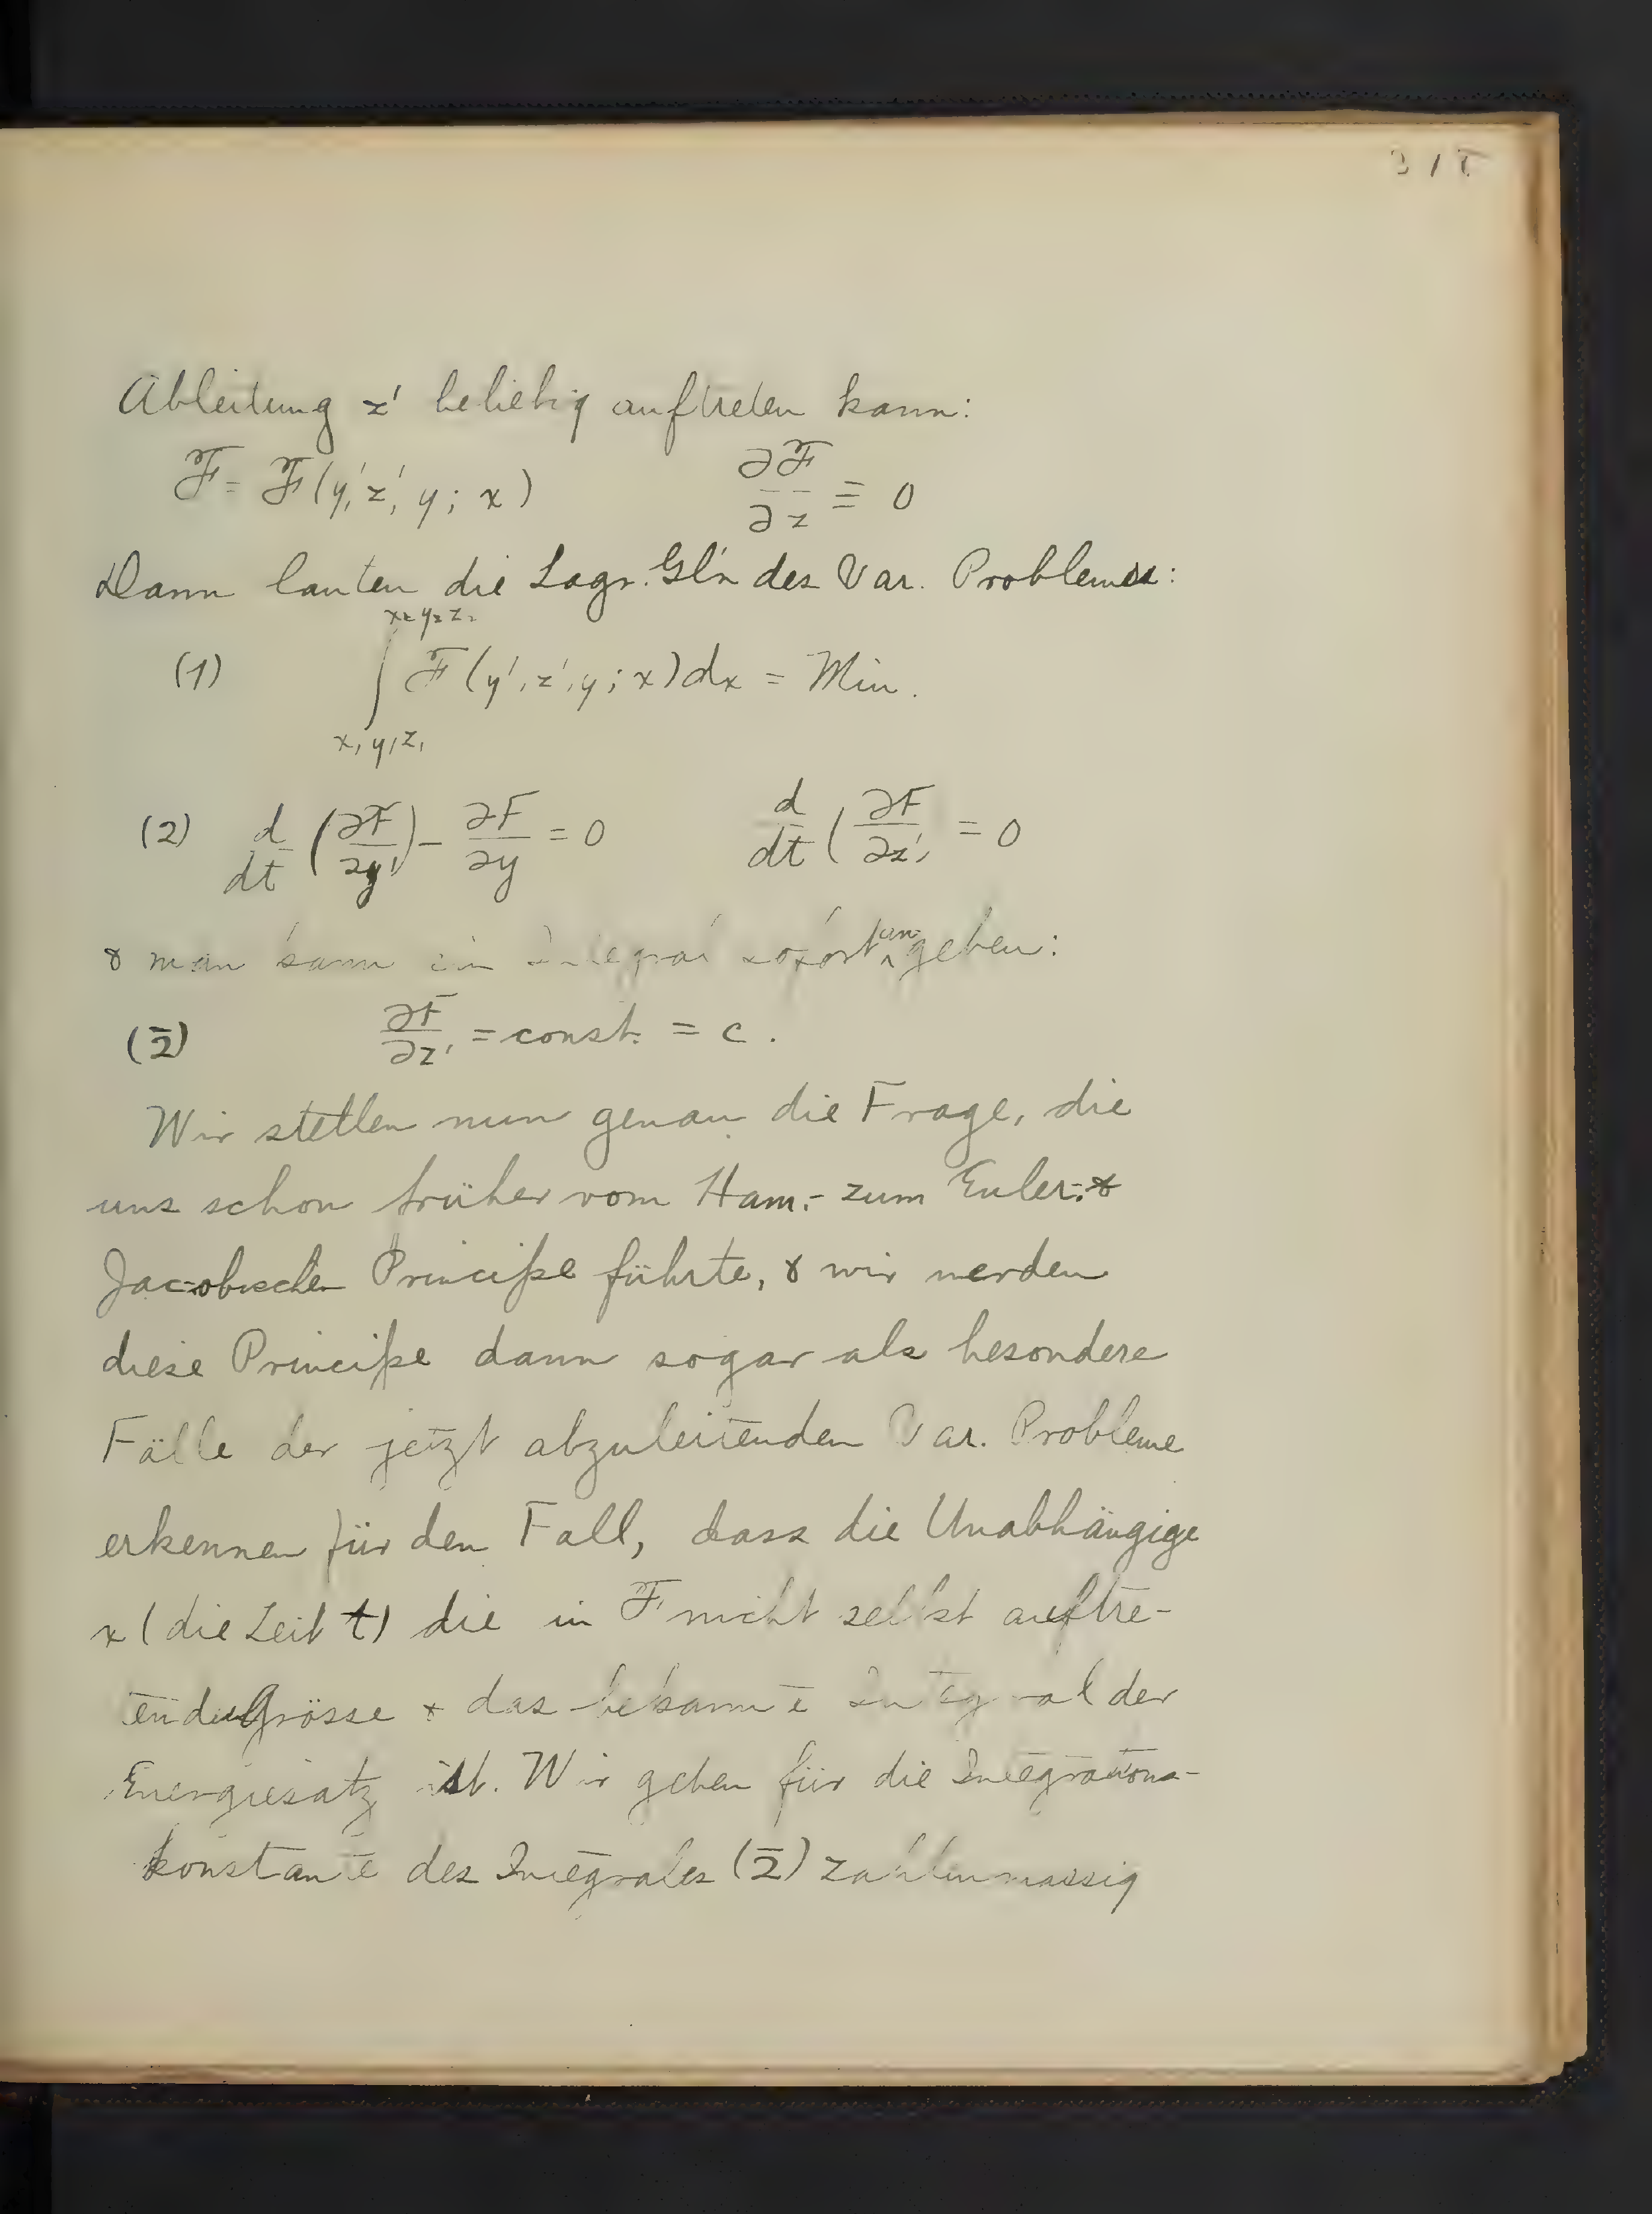 Ableitung z' beliebig auftreten kann:
F = F(y', z', y; x)   ∂F/∂z ≡ 0
Dann lauten die Lagr. Gl'n des Var. Problemes:
(1) ∫_{x₁y₁z₁}^{x₂y₂z₂} F(y', z', y; x) dx = Min.
(2) d/dt (∂F/∂y') - ∂F/∂y = 0   d/dt (∂F/∂z') = 0
& man kann ein Integral sofort angeben:
(2̄) ∂F/∂z' = const. = c.
Wir stellen nun genau die Frage, die
uns schon früher vom Ham.- zum Euler-&
Jacobischen Principe führte, & wir werden
diese Principe dann sogar als besondere
Fälle der jetzt abzuleitenden Var. Probleme
erkennen für den Fall, dass die Unabhängige
x (die Zeit t) die in F nicht selbst auftre-
tende Grösse & das bekannte Integral der
Energiesatz ist. Wir geben für die Integrations-
konstante des Integrales (2̄) zahlenmässig